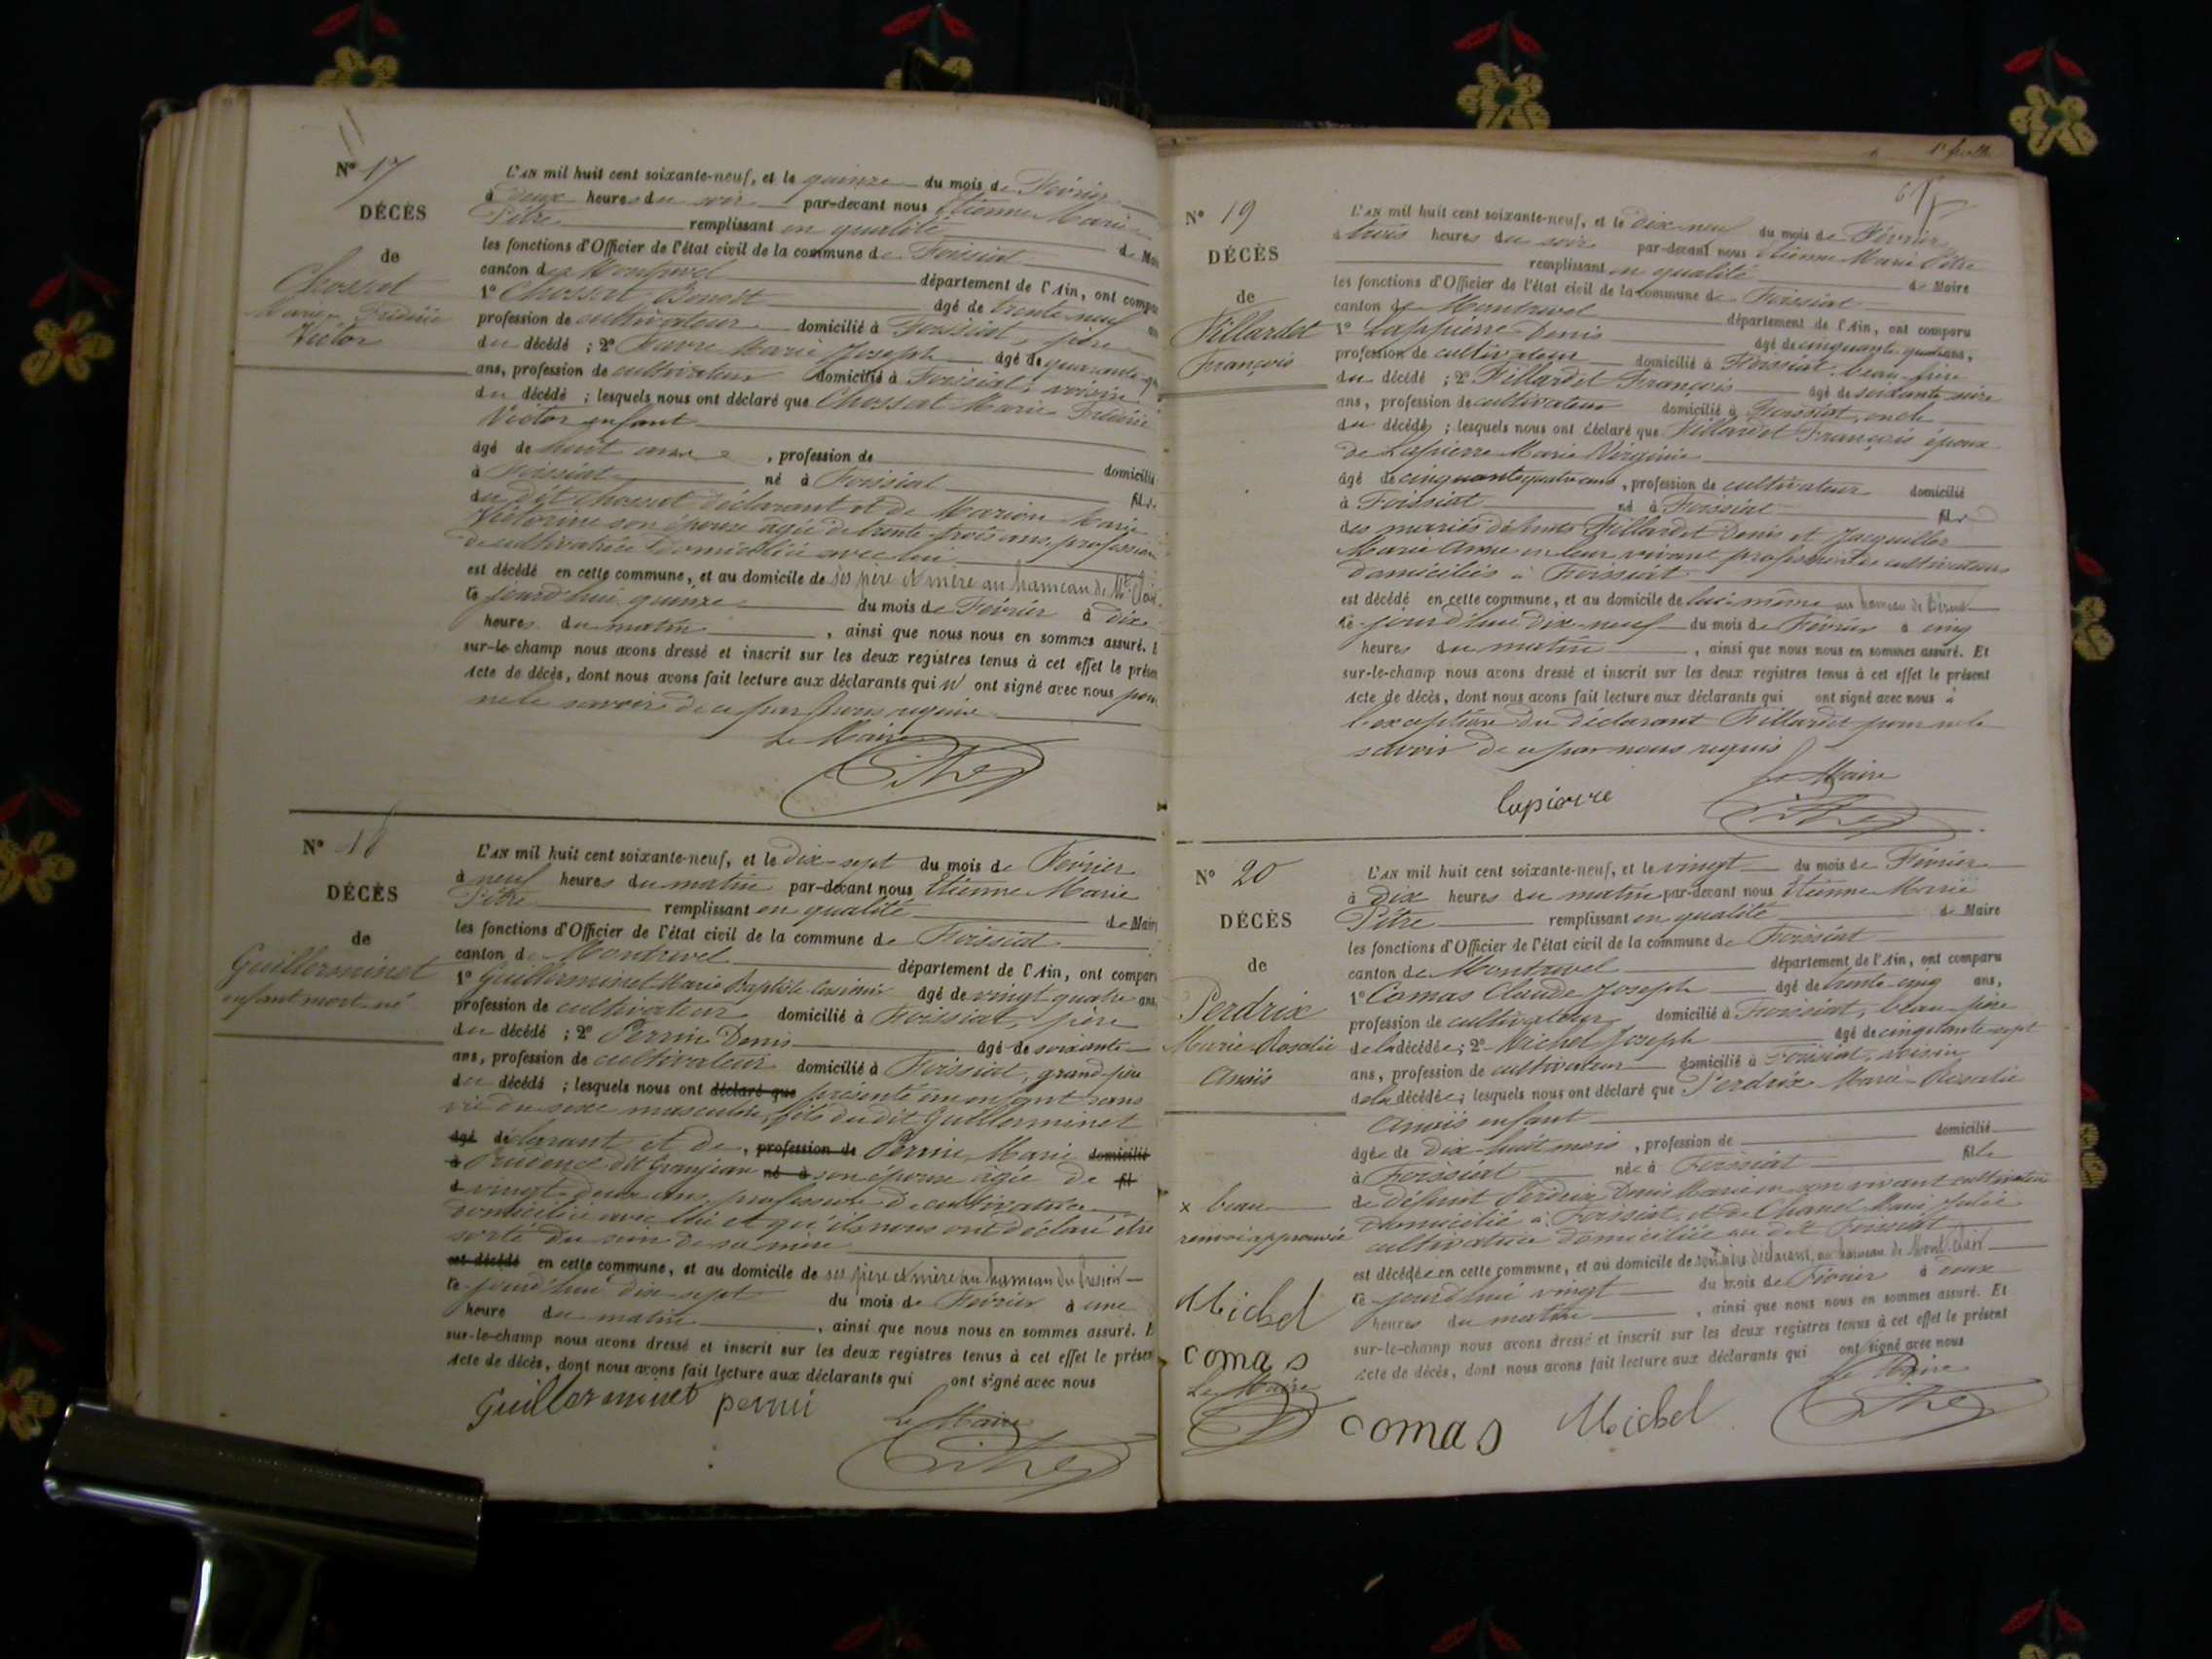 N° 17
DÉCÈS
de
Chossat
Marie Frédéric
Victor
L'AN mil huit cent soixante-neuf, et le quinze du mois de Février
à deux heures du soir par-devant nous Etienne Marie
Pitre remplissant en qualité de Mai
les fonctions d'Officier de l'état civil de la commune de Foissiat
canton de Montrevel département de l'Ain, ont compar
1° Chossat Benoit âgé de trente neuf an
profession de cultivateur domicilié à Foissiat, père
du décédé ; 2° Favre Marie Joseph âgé de quarante
ans, profession de cultivateur domicilié à Foissiat, voisin
du décédé ; lesquels nous ont déclaré que Chossat Marie Frédéric
Victor enfant
âgé de huit ans , profession de domicilié
à Foissiat né à Foissiat fils
du dit Chossat déclarant et de Marion Marie
Victorine son épouse agée de trente-trois ans, profession
de cultivatrice domiciliée avec lui
est décédé en cette commune, et au domicile de ses père et mère au hameau de
ce jourd'hui quinze du mois de Février à dix
heures du matin , ainsi que nous nous en sommes assuré. E
sur-le-champ nous avons dressé et inscrit sur les deux registres tenus à cet effet le présen
Acte de décès, dont nous avons fait lecture aux déclarants qui n' ont signé avec nous pour
ne le savoir de ce par nous requis
Le Maire
Pitre
N° 18
DÉCÈS
de
Guillerminet
enfant mort-né
L'AN mil huit cent soixante-neuf, et le dix-sept du mois de Février
à neuf heures du matin par-devant nous Etienne Marie
Pitre remplissant en qualité de Mair
les fonctions d'Officier de l'état civil de la commune de Foissiat
canton de Montrevel département de l'Ain, ont compar
1° Guillerminet Marie Baptiste Casimir âgé de vingt quatre ans
profession de cultivateur domicilié à Foissiat, père
du décédé ; 2° Perrin Denis âgé de soixante
ans, profession de cultivateur domicilié à Foissiat, grand-père
du décédé ; lesquels nous ont déclaré que présenté un enfant sans
vie du sexe masculin, fils du dit Guillerminet
âgé déclarant et de , profession de Perrin Marie domicilié
à Prudence dit Granjean né à son épouse âgée de fil
d vingt-deux ans, profession de cultivatrice
domiciliée avec lui et qu'ils nous ont déclaré être
sorti du sein de sa mère
est décédé en cette commune, et au domicile de ses père et mère au hameau du
ce jourd'hui dix-sept du mois de Février à une
heure du matin , ainsi que nous nous en sommes assuré. E
sur-le-champ nous avons dressé et inscrit sur les deux registres tenus à cet effet le présen
Acte de décès, dont nous avons fait lecture aux déclarants qui ont signé avec nous
Guillerminet perrin
Le Maire
Pitre
N° 19
DÉCÈS
de
Fillardet
François
L'AN mil huit cent soixante-neuf, et le dix-neuf du mois de Février
à trois heures du soir par-devant nous Etienne Marie Pitre
remplissant en qualité de Maire
les fonctions d'Officier de l'état civil de la commune de Foissiat
canton de Montrevel département de l'Ain, ont comparu
1° Lapierre Denis âgé de cinquante-quatre ans,
profession de cultivateur domicilié à Foissiat, beau-frère
du décédé ; 2° Fillardet François âgé de soixante seize
ans, profession de cultivateur domicilié à Foissiat, oncle
du décédé ; lesquels nous ont déclaré que Fillardet François époux
de Lapierre Marie Virginie
âgé de cinquante quatre ans , profession de cultivateur domicilié
à Foissiat né à Foissiat fils
des mariés défunts Fillardet Denis et Jacquillet
Marie Anne en leur vivant profession de cultivateurs
domiciliés à Foissiat
est décédé en cette commune, et au domicile de lui-même au hameau de
ce jourd'hui dix-neuf du mois de Février à cinq
heures du matin , ainsi que nous nous en sommes assuré. Et
sur-le-champ nous avons dressé et inscrit sur les deux registres tenus à cet effet le présent
Acte de décès, dont nous avons fait lecture aux déclarants qui ont signé avec nous à
l'exception du déclarant Fillardet pour ne le
savoir de ce par nous requis
Le Maire
lapierre
Pitre
N° 20
DÉCÈS
de
Perdrix
Marie-Rosalie
Anaïs
L'AN mil huit cent soixante-neuf, et le vingt du mois de Février
à dix heures du matin par-devant nous Etienne Marie
Pitre remplissant en qualité de Maire
les fonctions d'Officier de l'état civil de la commune de Foissiat
canton de Montrevel département de l'Ain, ont comparu
1° Comas Claude Joseph âgé de trente cinq ans,
profession de cultivateur domicilié à Foissiat, beau-père
de la décédée; 2° Michel Joseph âgé de cinquante-sept
ans, profession de cultivateur domicilié à Foissiat, voisin
de la décédée; lesquels nous ont déclaré que Perdrix Marie-Rosalie
Anaïs enfant
âgée de dix-huit mois , profession de domicilié
à Foissiat née à Foissiat fille
de défunt Perdrix Denis Marie en son vivant cultivateur
domicilié à Foissiat, et de Chanel Marie Julie
cultivatrice domiciliée au dit Foissiat
est décédée en cette commune, et au domicile de son x père déclarant, au hameau de
ce jourd'hui vingt du mois de Février à deux
heures du matin , ainsi que nous nous en sommes assuré. Et
sur-le-champ nous avons dressé et inscrit sur les deux registres tenus à cet effet le présent
Acte de décès, dont nous avons fait lecture aux déclarants qui ont signé avec nous
Le Maire
x beau
renvoi approuvé
Michel
comas
Le Maire
comas Michel
Pitre